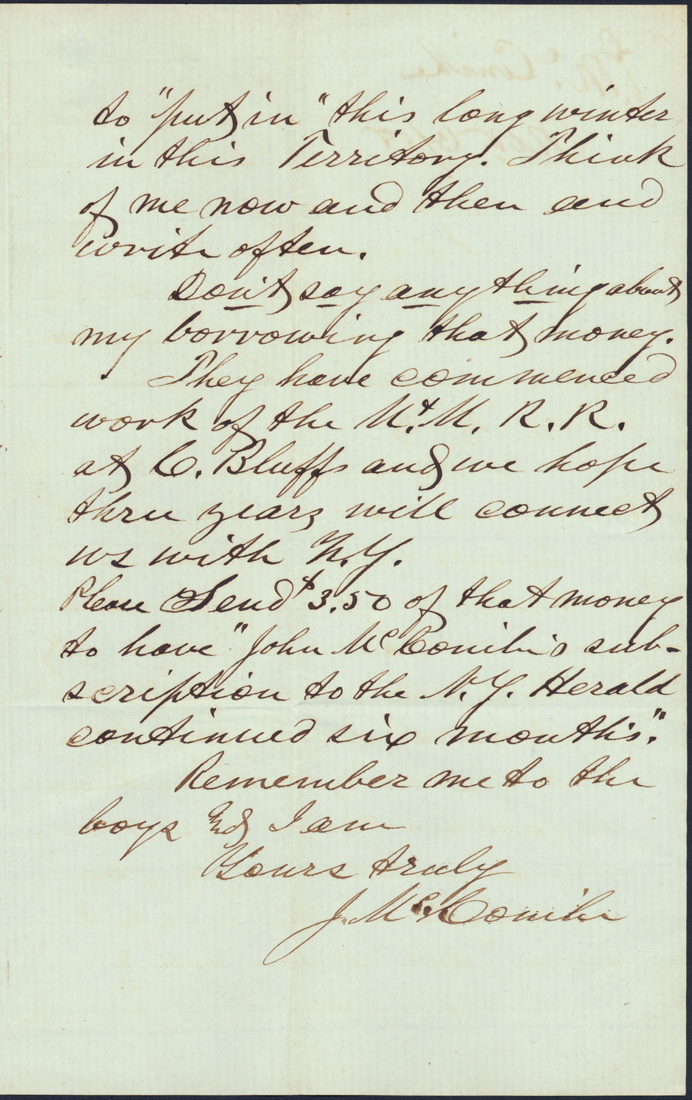 to "put in" this long winter
in this Territory. Think
of me now and then and
write often.
Don't say anything about
my borrowing that money.
They have commenced
work of the M. & M. R. R.
at C. Bluffs and we hope
three years will connect
us with N.Y.
Please Send $3.50 of that money
to have "John McConihe's sub-
scription to the N.Y. Herald
continued six months".
Remember me to the
boys & I am
Yours truly
J. McConihe